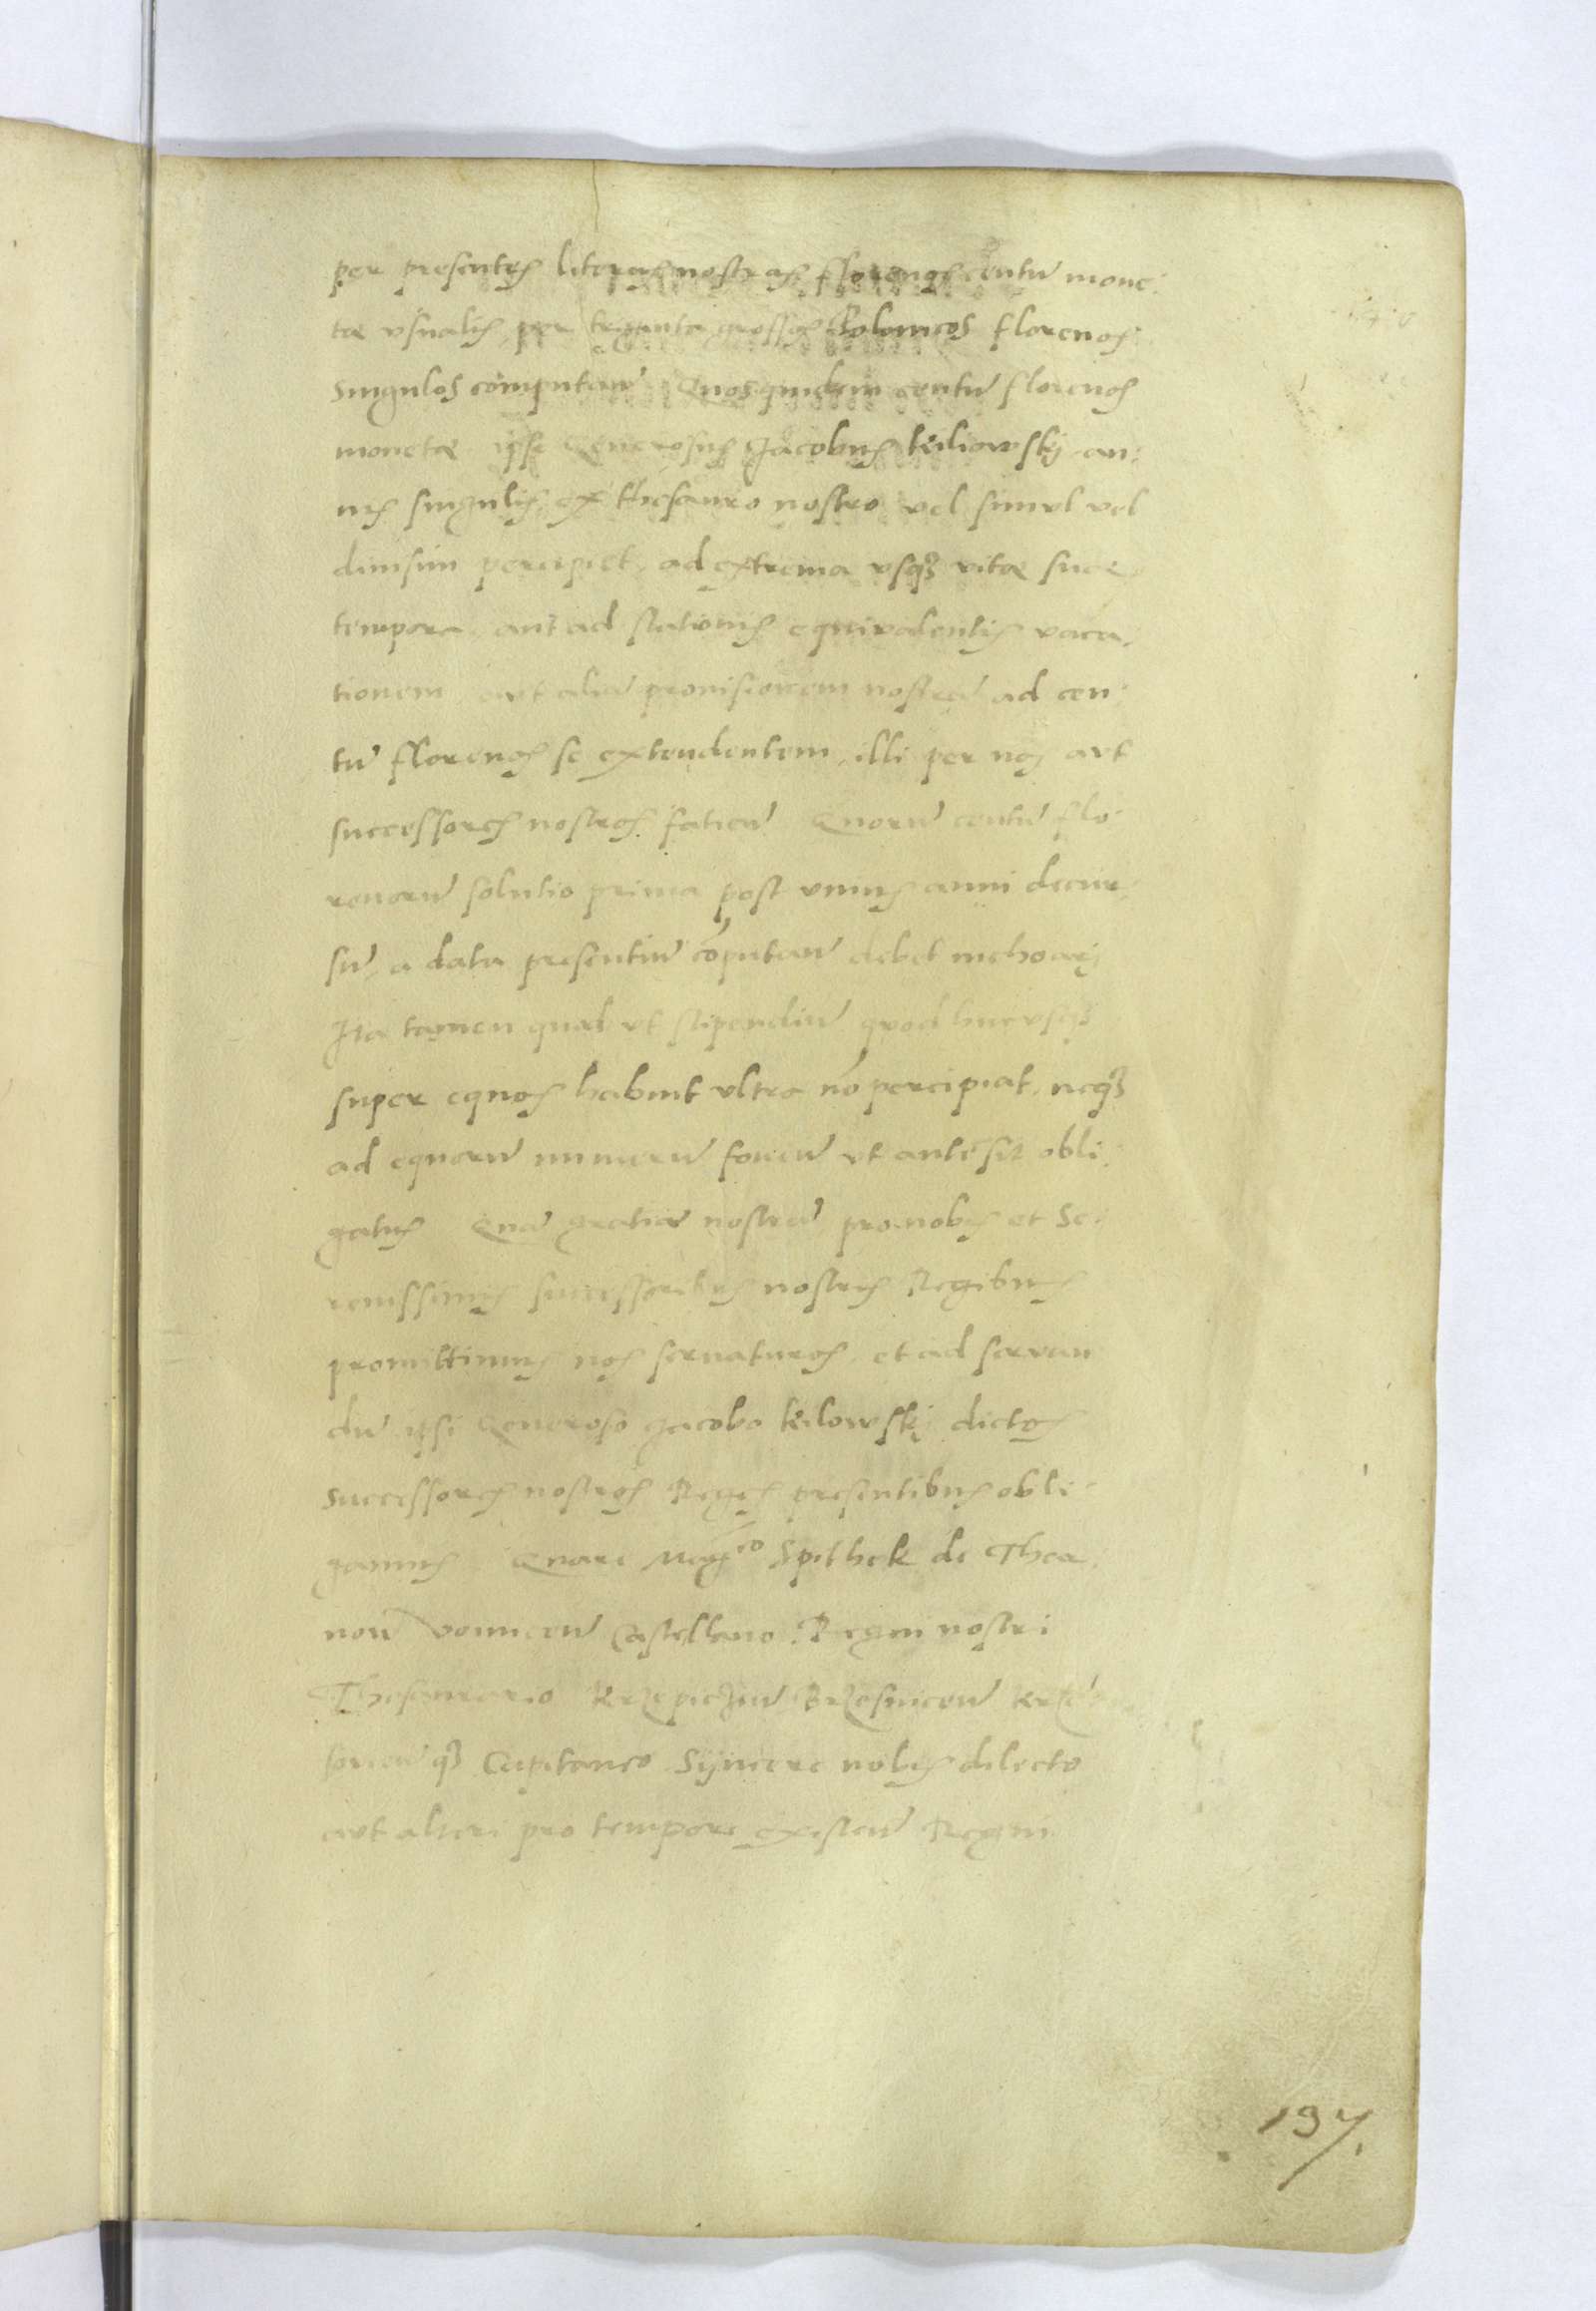 per presentes literas nostras florenos centū mone:
tæ vsualis, per triginta grossos Polonicos florenos
singulos computan̄ Quos quidem centū florenos
monetæ ipse Generosus Jacobus kiliowskij an:
nis singulis ex thesauro nostro vel simul vel
diuisim percipiet, ad extrema vsq3 vitæ suæ
tempora, aut ad stationis equivalentis vaca,
tionem aut aliā prouisionem nostrā ad cen:
tū florenos se extendentem, illi per nos aut
successores nostros fatien̄ Quorū centū flo
renorū solutio prima post vnius anni decur,
sū, a data presentiū cōputan̄ debet inchoarj
Ita tamen quod vt stipendiū quod hucvsq3
super equos habuit vltra nō percipiat, neq3
ad equorū numerū fouen̄ vt ante sit obli:
gatus Quā gratiā nostrā pro nobis et Se:
renissimis successoribus nostris Regibus
promittimus nos seruaturos, et ad seruan
dū ipsi Generoso Jacobo kilowskj dictos
successores nostros Reges presentibus obli
gamus Quare Magco Spithek de Thar
now voinicen̄ Castellano Regni nostri
Thesaurario Krzepiczen̄ Brzesnicen̄
q3 Capitaneo Sijncere nobis dilecto
aut alteri pro tempore existen̄ Regni
197.